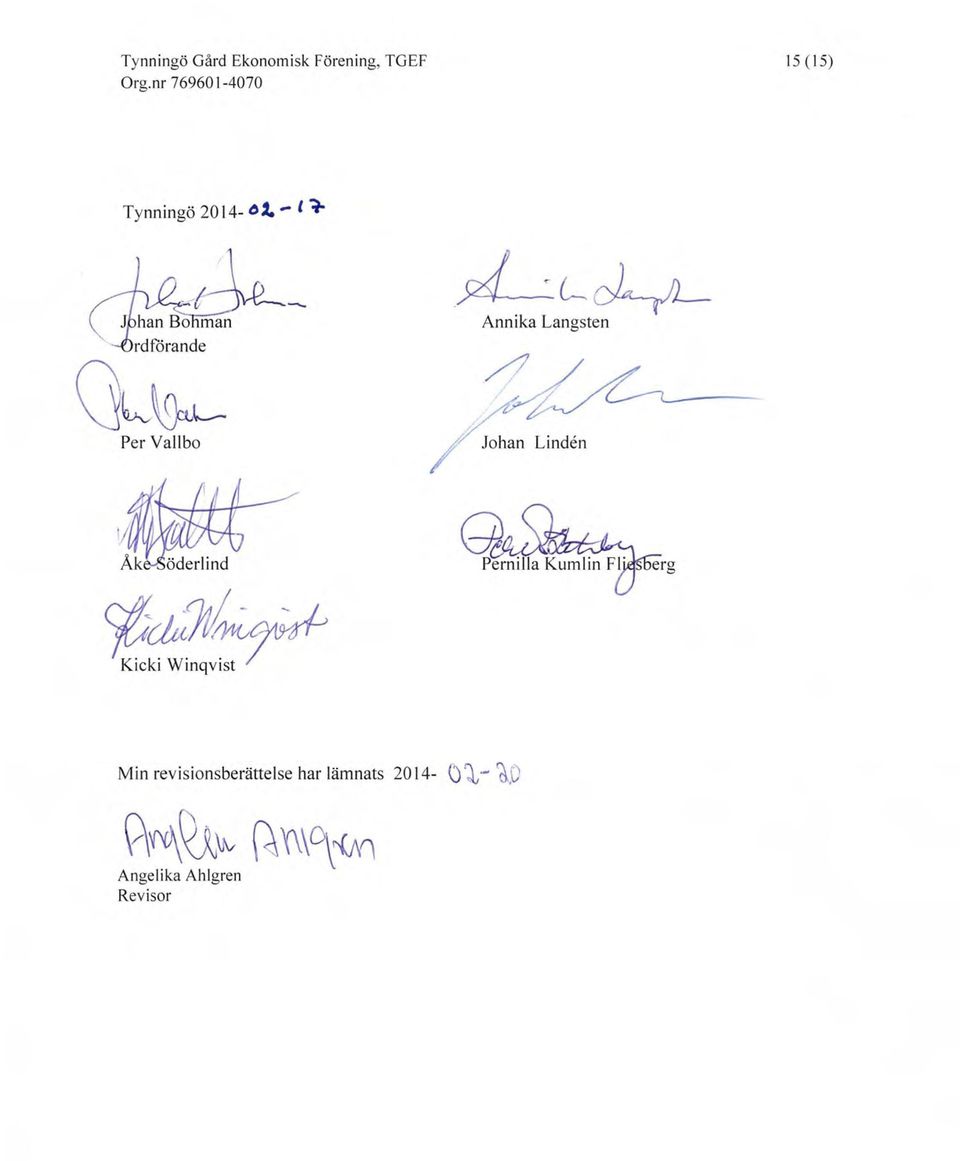 Tynningö Gård Ekonomisk Förening, TGEF 15 (15)
Org.nr 769601-4070
Tynningö 2014-02-17
Johan Bohman
Ordförande
Annika Langsten
Per Vallbo
Johan Lindén
Åke Söderlind
Pernilla Kumlin Fliesberg
Kicki Winqvist
Kicki Winqvist
Min revisionsberättelse har lämnats 2014- 02-20
Angelika Ahlgren
Angelika Ahlgren
Revisor